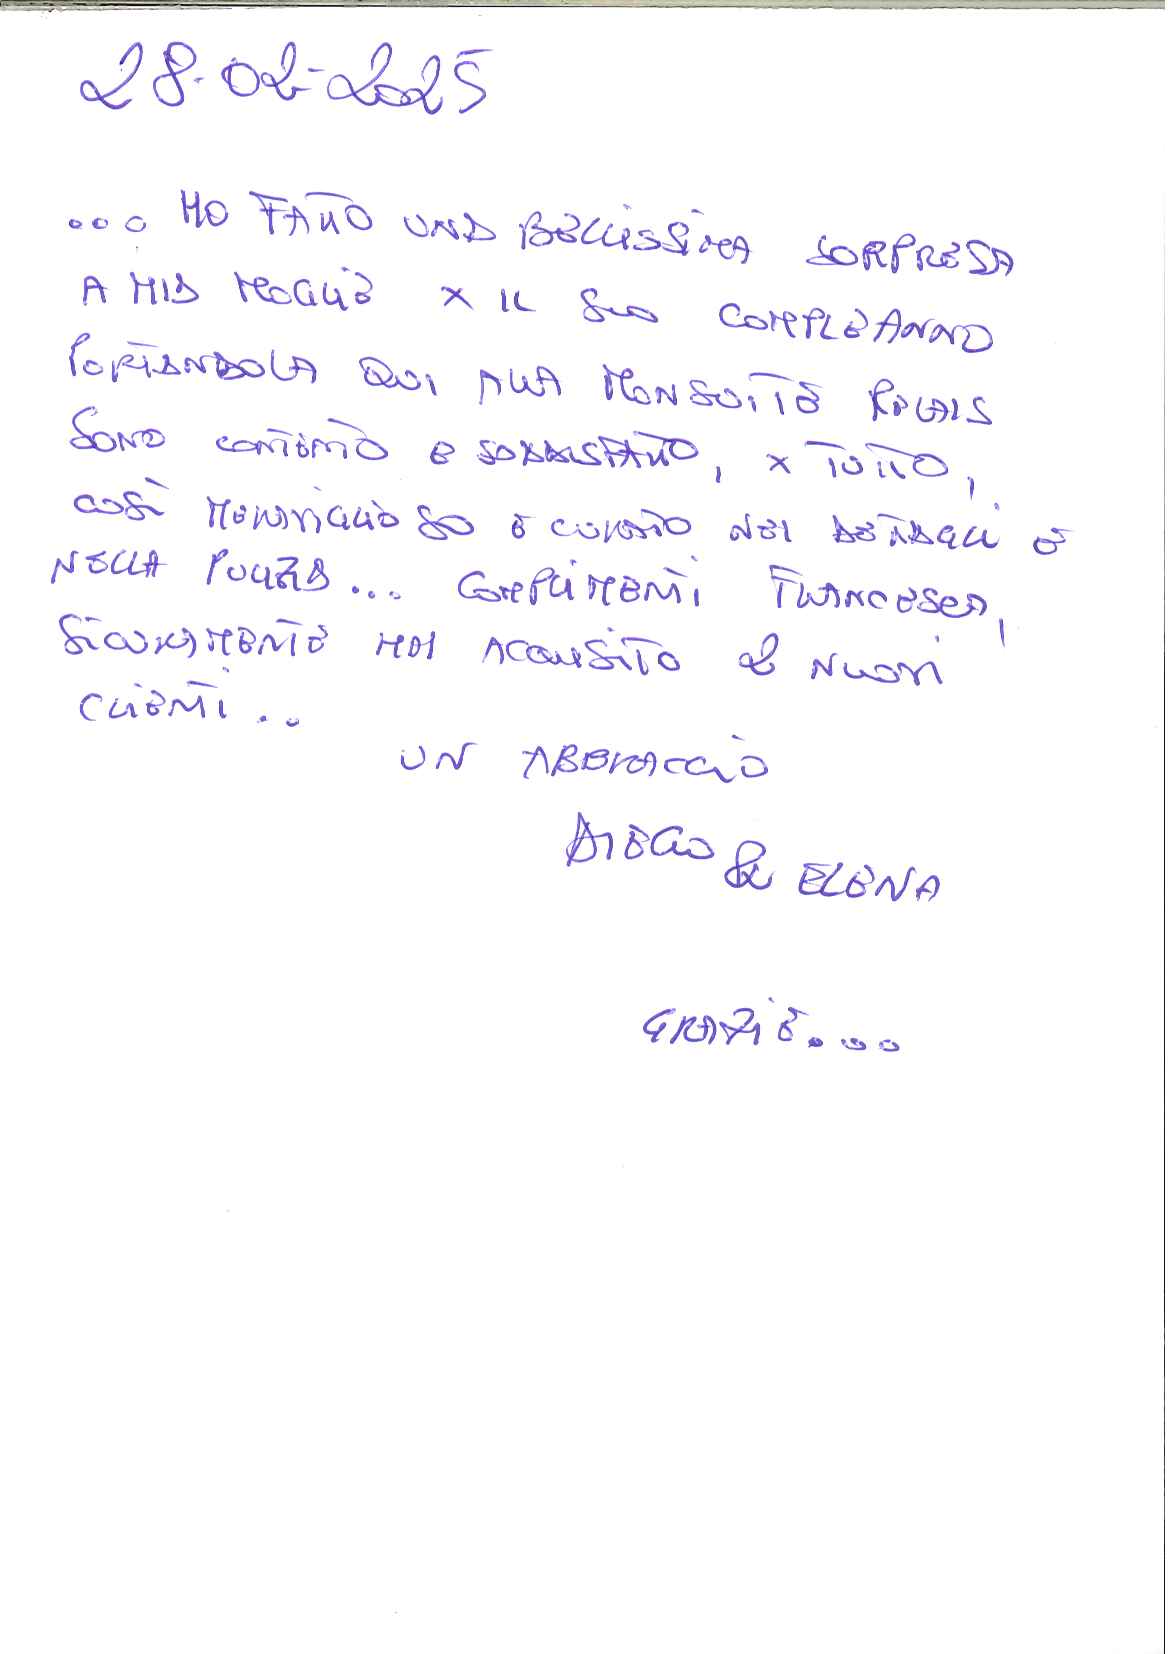 28-02-2025
... HO FATTO UNA BELLISSIMA SORPRESA
A MIA MOGLIE X IL SUO COMPLEANNO
PORTANDOLA QUI ALLA MONSUITE
SONO CONTENTO E SODDISFATTO, X TUTTO,
COSÌ MERAVIGLIOSO E CURATO NEI DETTAGLI E
NELLA PULIZIA... COMPLIMENTI FRANCESCA,
SICURAMENTE HAI ACQUISITO 2 NUOVI
CLIENTI..
UN ABBRACCIO
DIEGO & ELENA
GRAZIE....